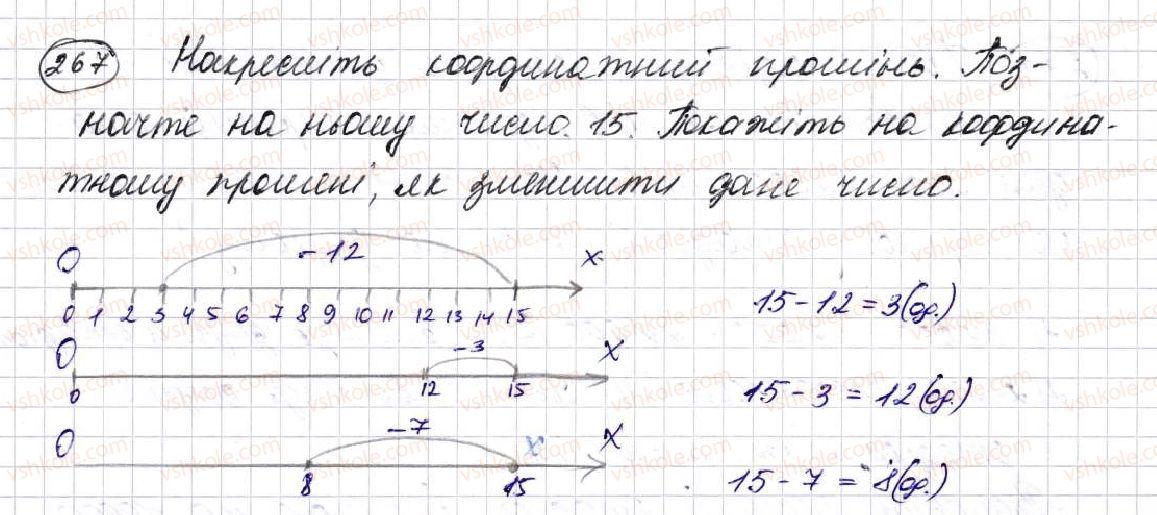 267 Накресліть координатний промінь. Поз-
начте на ньому число 15. Покажіть на координа-
тному промені, як зменшити дане число.
O -12 x
0 1 2 3 4 5 6 7 8 9 10 11 12 13 14 15
15 - 12 = 3 (од.)
O -3 x
0 12 15
15 - 3 = 12 (од.)
O -7 x x
8 15
15 - 7 = 8 (од.)
vshkole.com